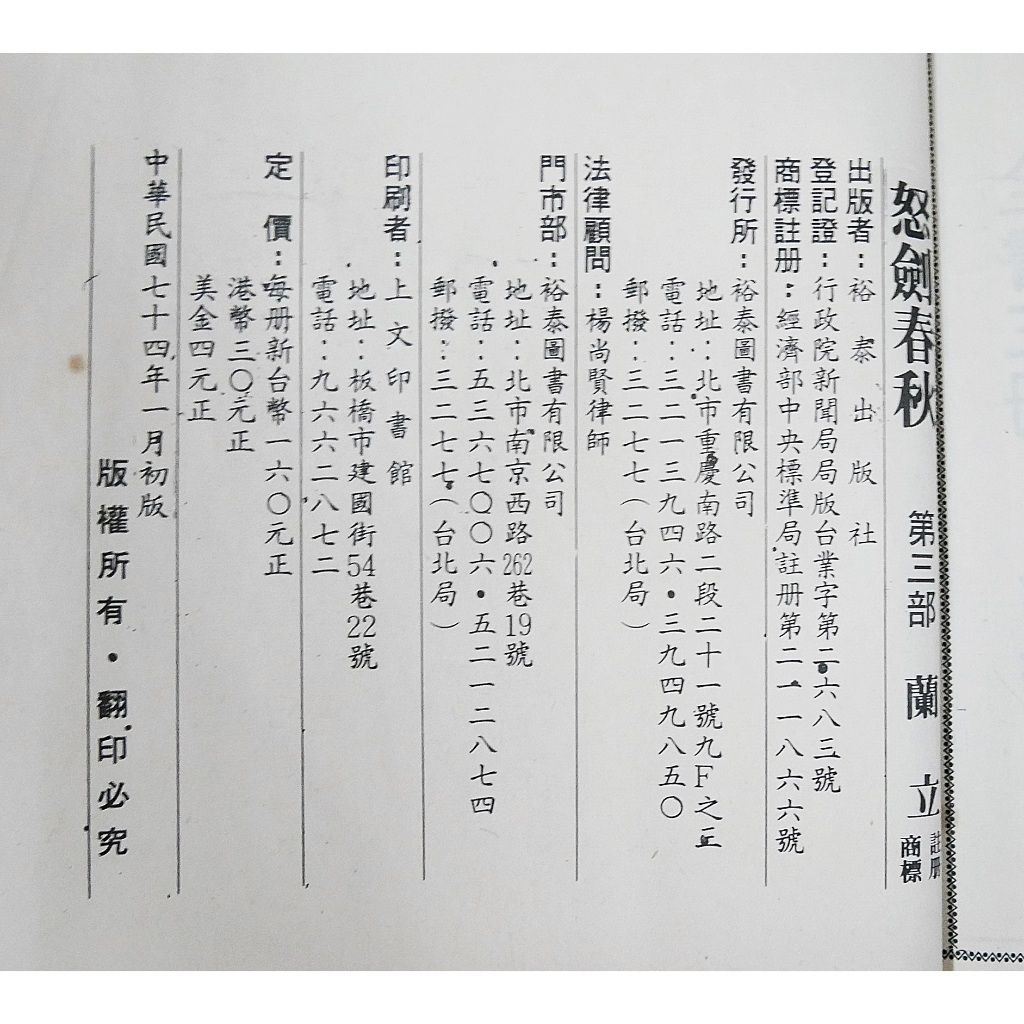 怒劍春秋 第三部 蘭立
註册
商標
出版者：裕泰出版社
登記證：行政院新聞局局版台業字第二六八三號
商標註册：經濟部中央標準局註册第二一一八六六號
發行所：裕泰圖書有限公司
地址：北市重慶南路二段二十一號九F之三
電話：三二一三九四六•三九四九八五〇
郵撥：三二七七（台北局）
法律顧問：楊尚賢律師
門市部：裕泰圖書有限公司
地址：北市南京西路262巷19號
電話：五三六七〇〇六•五二一二八七四
郵撥：三二七七（台北局）
印刷者：上文印書館
地址：板橋市建國街54巷22號
電話：九六六二八七二
定價：每册新台幣一六〇元正
港幣三〇元正
美金四元正
中華民國七十四年一月初版
版權所有•翻印必究